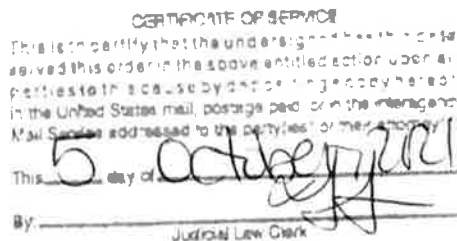 CERTIFICATE OF SERVICE
This is to certify that the undersigned has this date
served this order in the above entitled action upon all
parties to this cause by depositing a copy hereof
in the United States mail, postage paid, or in the Interagency
Mail Service addressed to the parties or their attorney
This 5 day of October 2021
By
Judicial Law Clerk